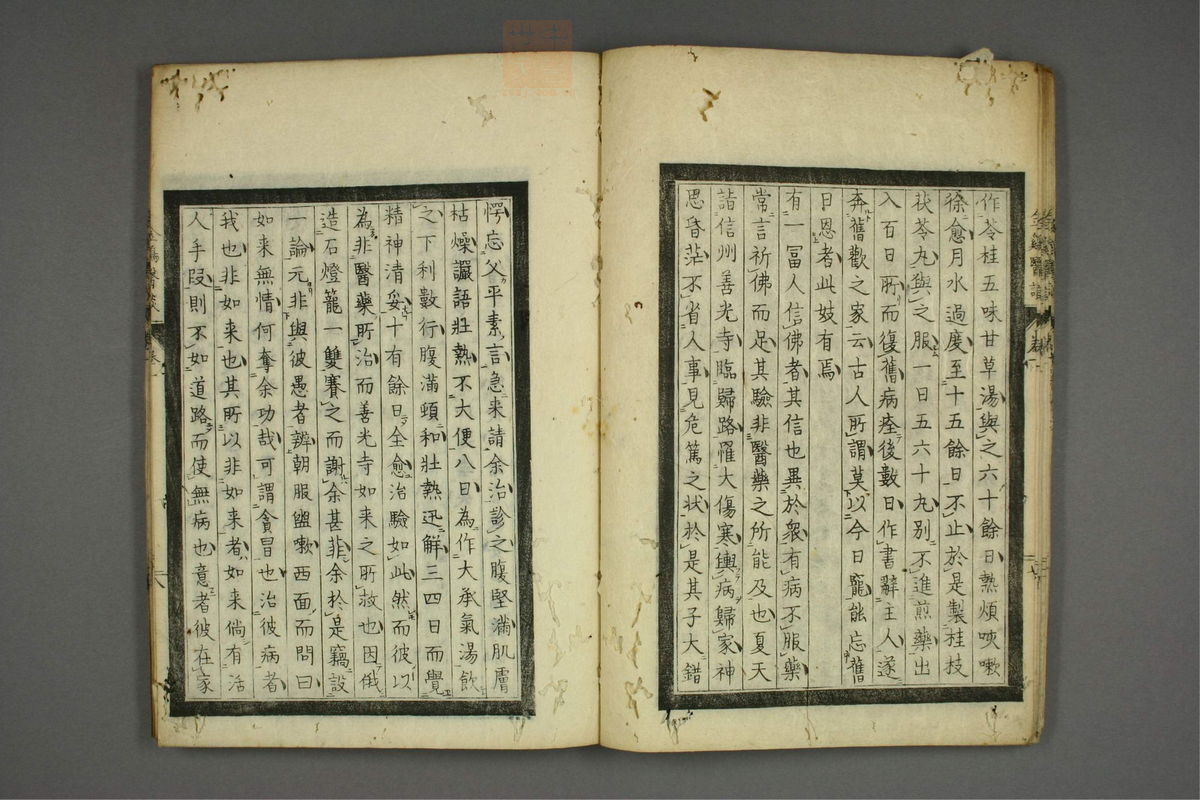 作苓桂五味甘草湯與之六十餘日熱煩咳嗽
徐愈月水過度至十五餘日不止於是製桂枝
茯苓丸與之服一日五六十丸別不進煎藥出
入百日所而復舊病痊後數日作書辭主人遂
奔舊歡之家云古人所謂莫以今日寵能忘舊
日恩者此妓有焉
有一冨人信佛者其信也異於衆有病不服藥
常言祈佛而足其驗非醫藥之所能及也夏天
詣信州善光寺臨歸路罹大傷寒輿病歸家神
思昏茫不省人事見危篤之狀於是其子大錯
愕忘父平素言急来請余治診之腹堅滿肌膚
枯燥讝語壯熱不大便八日為作大承氣湯飲
之下利數行腹滿頓和壯熱迅解三四日而覺
精神清妥十有餘日全愈治驗如此然而彼以
為非醫藥所治而善光寺如来之所救也因俄
造石燈籠一雙賽之而謝余甚菲余於是竊設
一論元非與彼愚者辨朝服幽嗽西面而問曰
如来無情何奪余功哉可謂貪冒也治彼病者
我也非如来也其所以非如来者如来倘有活
人手段則不如道路而使無病也意者彼在家